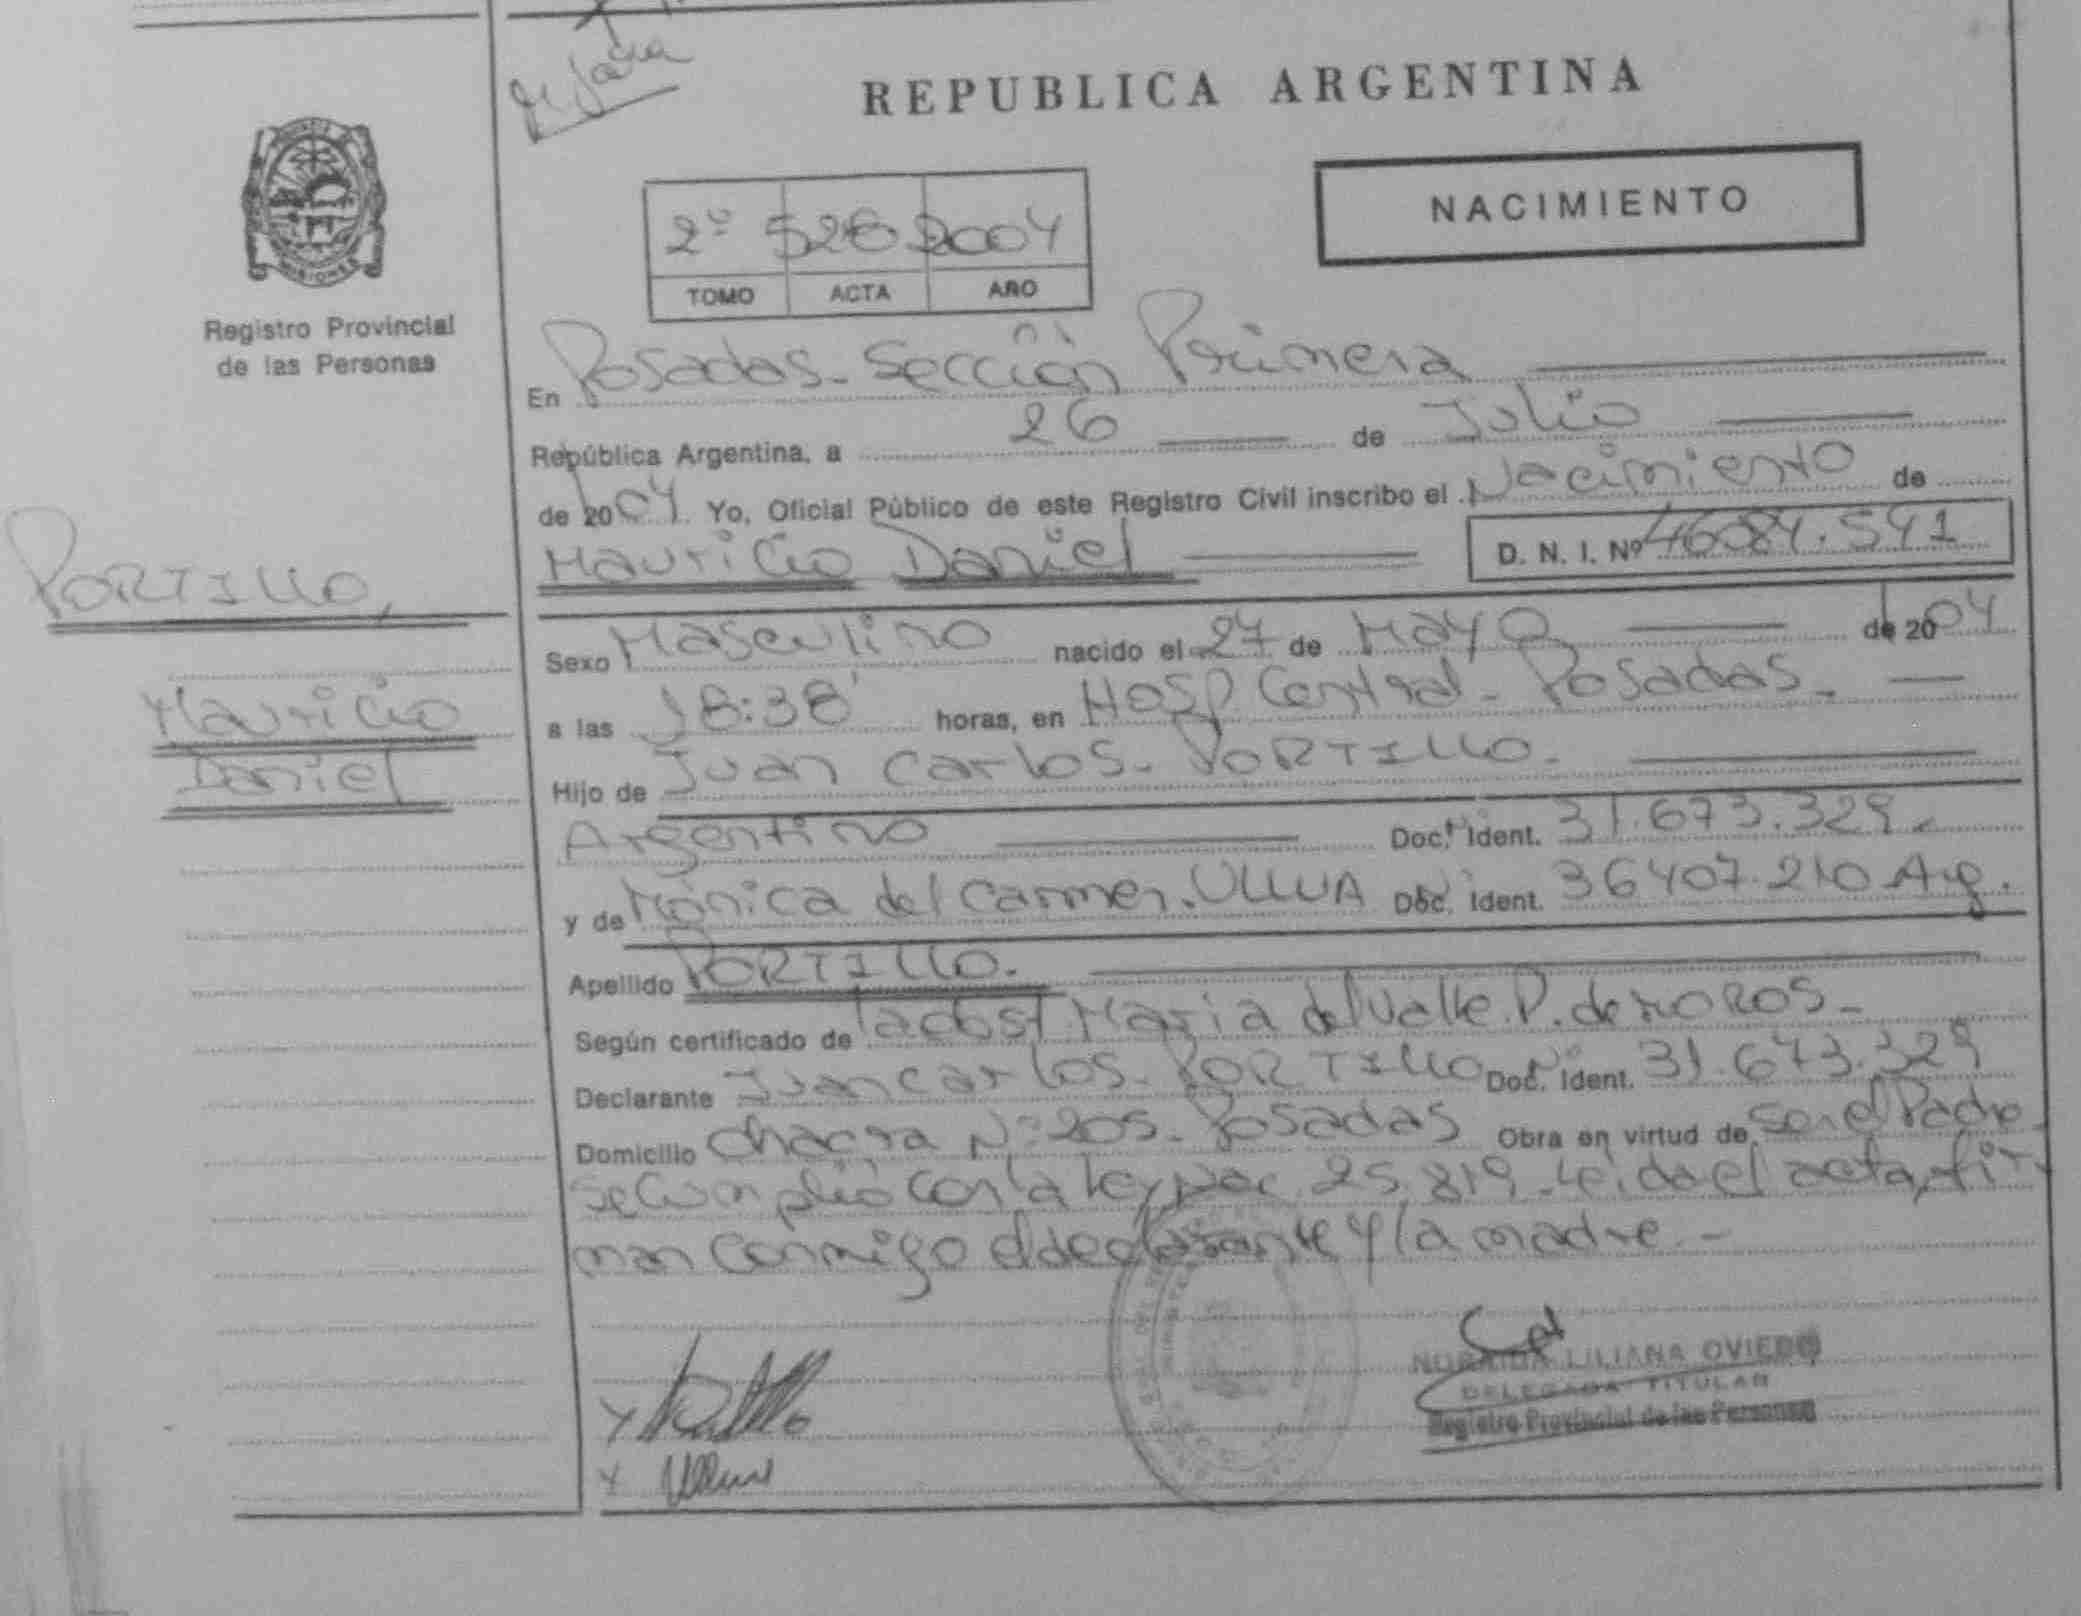 REPUBLICA ARGENTINA
NACIMIENTO
2º 526 2004
TOMO ACTA AÑO
MISIONES
Registro Provincial
de las Personas
PORTILLO,
Mauricio
Daniel
En Posadas - Sección Primera
República Argentina, a 26 de Julio
de 2004 Yo, Oficial Público de este Registro Civil inscribo el Nacimiento de
Mauricio Daniel D. N. I. Nº 46084.541
Sexo Masculino nacido el 27 de Mayo de 2004
a las 18:38' horas, en Hosp. Central - Posadas.
Hijo de Juan Carlos - PORTILLO.
Argentino Doc. Ident. 31.673.329.
y de Mónica del Carmen. ULLUA Doc. Ident. 36407.210 Arg.
Apellido PORTILLO.
Según certificado de María del Valle P. de
Declarante Juan Carlos - PORTILLO Doc. Ident. 31.673.329
Domicilio Chacra Nº 205 - Posadas Obra en virtud de ser el Padre.
Se Cumplió con la ley Nac 25.819. Leída el acta, fir
man conmigo el declarante y la madre.-
LILIANA OVIEDO
DELEGADA TITULAR
Registro Provincial de las Personas